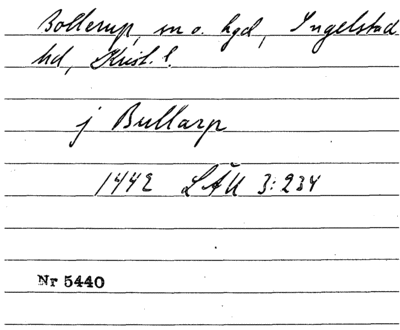 Bollerup, sn o. hgd, Ingelstad
hd, Krist. l.
j Bullarp
1442 LÄU 3:234
Nr 5440